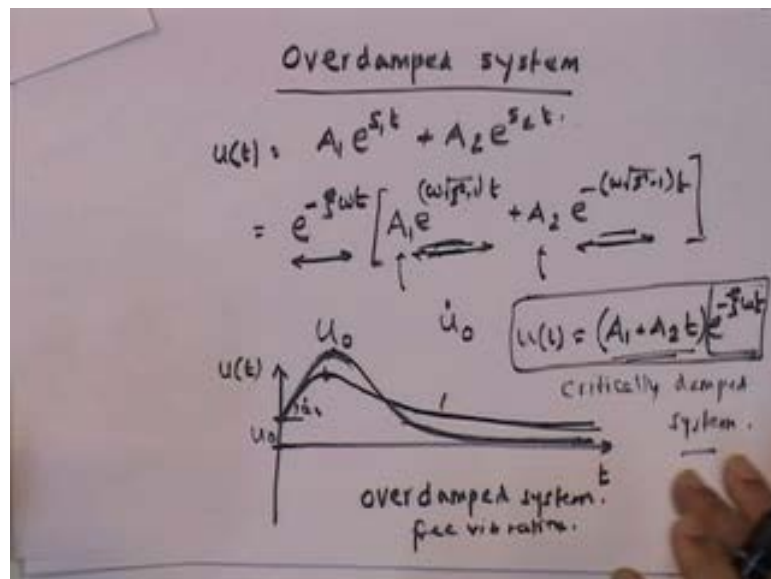 Overdamped system
u(t) = A₁e^{s₁t} + A₂e^{s₂t}.
= e^{-ξωt} [A₁e^{(ω√ξ²-1)t} + A₂e^{-(ω√ξ²-1)t}]
u₀ u̇₀
u(t) = (A₁+A₂t)e^{-ξωt}
critically damped
system.
u(t)
u̇₀
u₀
t
overdamped system.
free vibration.